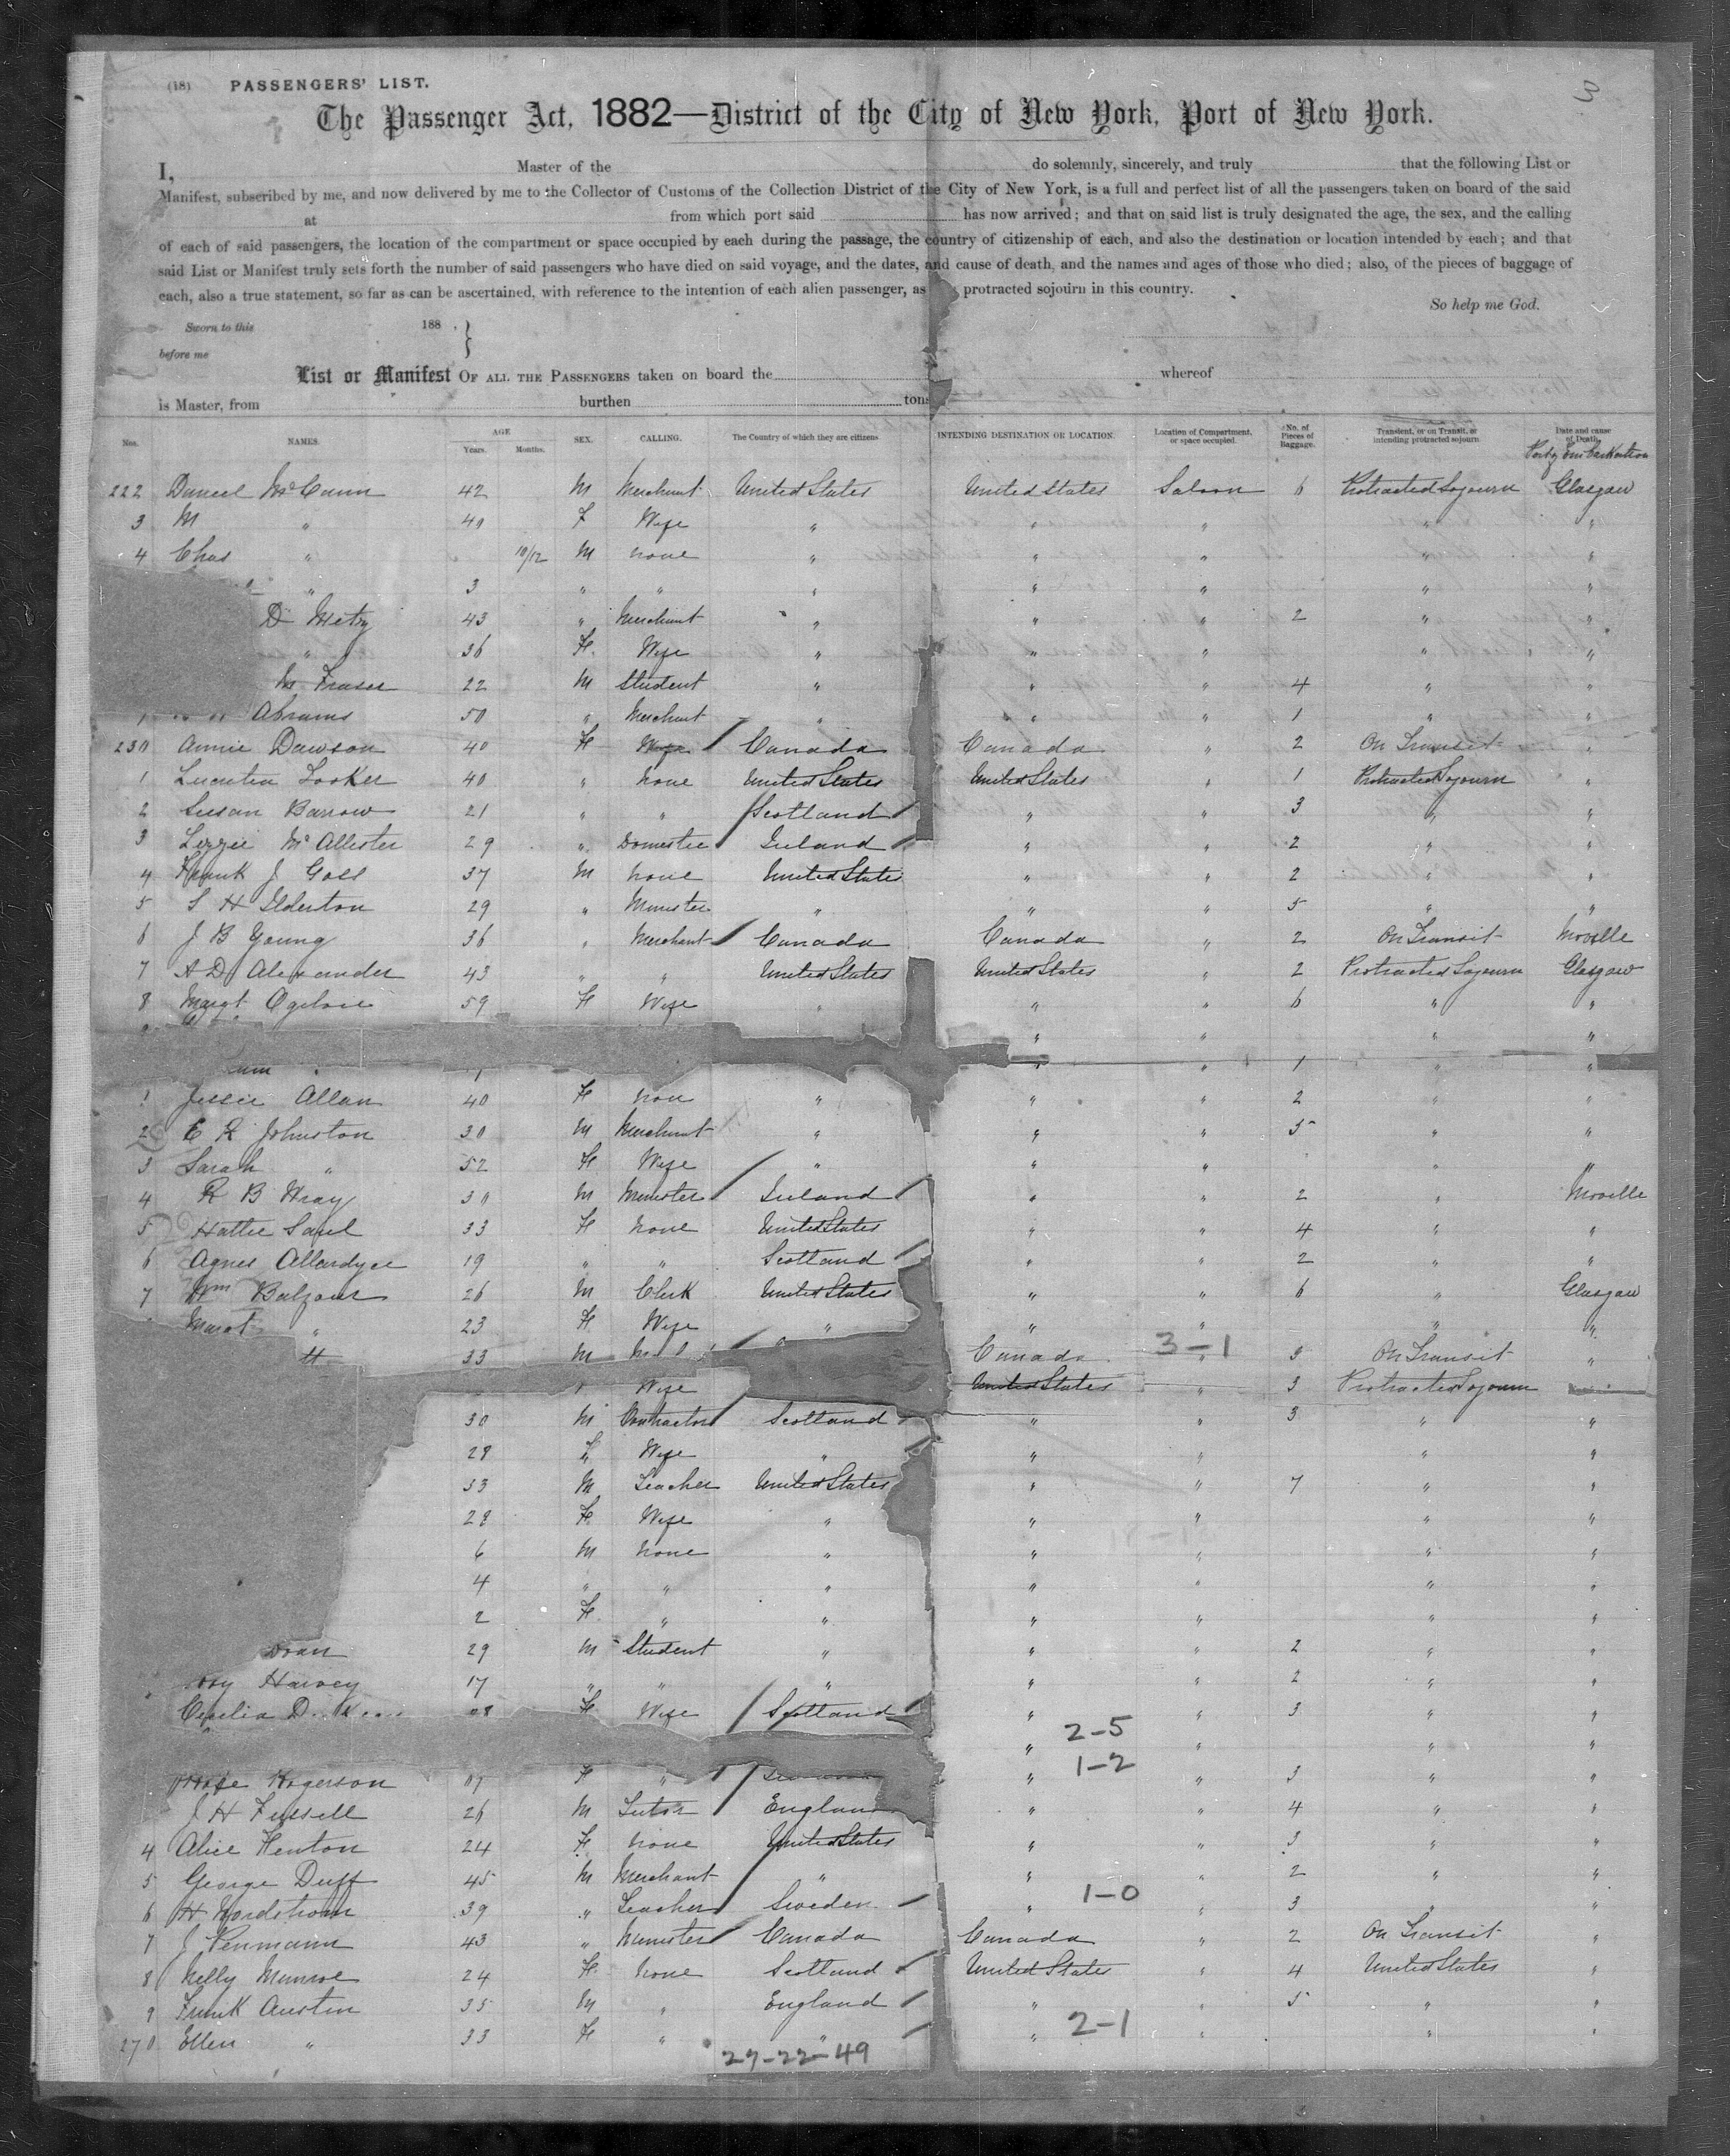 3
(18) PASSENGERS' LIST.
The Passenger Act, 1882—District of the City of New York, Port of New York.
I, Master of the do solemnly, sincerely, and truly that the following List or
Manifest, subscribed by me, and now delivered by me to the Collector of Customs of the Collection District of the City of New York, is a full and perfect list of all the passengers taken on board of the said
at from which port said has now arrived; and that on said list is truly designated the age, the sex, and the calling
of each of said passengers, the location of the compartment or space occupied by each during the passage, the country of citizenship of each, and also the destination or location intended by each; and that
said List or Manifest truly sets forth the number of said passengers who have died on said voyage, and the dates, and cause of death, and the names and ages of those who died; also, of the pieces of baggage of
each, also a true statement, so far as can be ascertained, with reference to the intention of each alien passenger, as protracted sojourn in this country.
So help me God.
Sworn to this 188 . }
before me
List or Manifest OF ALL THE PASSENGERS taken on board the whereof
is Master, from burthen tons
Nos. NAMES. AGE Years. Months. SEX. CALLING. The Country of which they are citizens. INTENDING DESTINATION OR LOCATION. Location of Compartment, or space occupied. No. of Pieces of Baggage. Transient, or on Transit, or intending protracted sojourn. Date and cause of Death.
Port of Embarkation
222 Daniel McCann 42 M Merchant United States United States Saloon 6 Protracted Sojourn Glasgow
3 M " 40 F Wife " " " " "
4 Chas " 10/12 M none " " " " "
" 3 " " " " " " "
D Metry 43 " Merchant " " " 2 " "
" 36 F. Wife " " " " "
M Fraser 22 M Student " " " 4 " "
Abrams 50 " Merchant " " " 1 " "
230 Annie Dawson 40 F Wife Canada Canada " 2 On Transit "
1 Lucretia Looker 40 " none United States United States " 1 Protracted Sojourn "
2 Susan Barrow 21 " " Scotland " " 3 " "
3 Lizzie McAllister 29 " Domestic Ireland " " 2 " "
4 Frank J Goll 37 M none United States " " 2 " "
5 S H Elderton 29 " Minister " " " 5 " "
6 J B Young 36 " Merchant Canada Canada " 2 On Transit Moville
7 A D Alexander 43 " " United States United States " 2 Protracted Sojourn Glasgow
8 Margt Ogilvie 59 F Wife " " " 6 " "
" " " "
" " 1 " "
1 Jessie Allan 40 F non " " " 2 " "
2 E R Johnston 30 M Merchant " " " 5 " "
3 Sarah " 52 F Wife " " " " "
4 R B Wray 30 M Minister Ireland " " 2 " Moville
5 Hattie Saul 33 F none United States " " 4 " "
6 Agnes Allardyce 19 " " Scotland " " 2 " "
7 Wm Balfour 26 M Clerk United States " " 6 " Glasgow
Margt " 23 F Wife " " " " "
33 M Canada 3-1 " 3 On Transit "
Wife United States " 3 Protracted Sojourn
30 M Contractor Scotland " " 3 " "
28 F Wife " " " " "
33 M Teacher United States " " 7 " "
28 F Wife " " " " "
6 M none " " " " "
4 " " " " " " "
2 F " " " " " "
29 M Student " " " 2 " "
Harvey 17 " " " " " 2 " "
Cecelia F Wife Scotland " " 3 " "
2-5
" " " "
1-2
Rogerson F " " " 3 " "
J H Fussell 26 M Tutor England " " 4 " "
4 Alice Henton 24 F none United States " " 3 " "
5 George Duff 45 M Merchant " " " 2 " "
6 H Nordstrom 39 " Teacher Sweden " 1-0 " 3 " "
7 J Penmann 43 " Minister Canada Canada " 2 On Transit "
8 Nelly Munroe 24 F. none Scotland United States " 4 United States "
9 Frank Austin 35 M " England " " 5 " "
270 Ellen " 33 F " " " 2-1 " " "
27-22-49